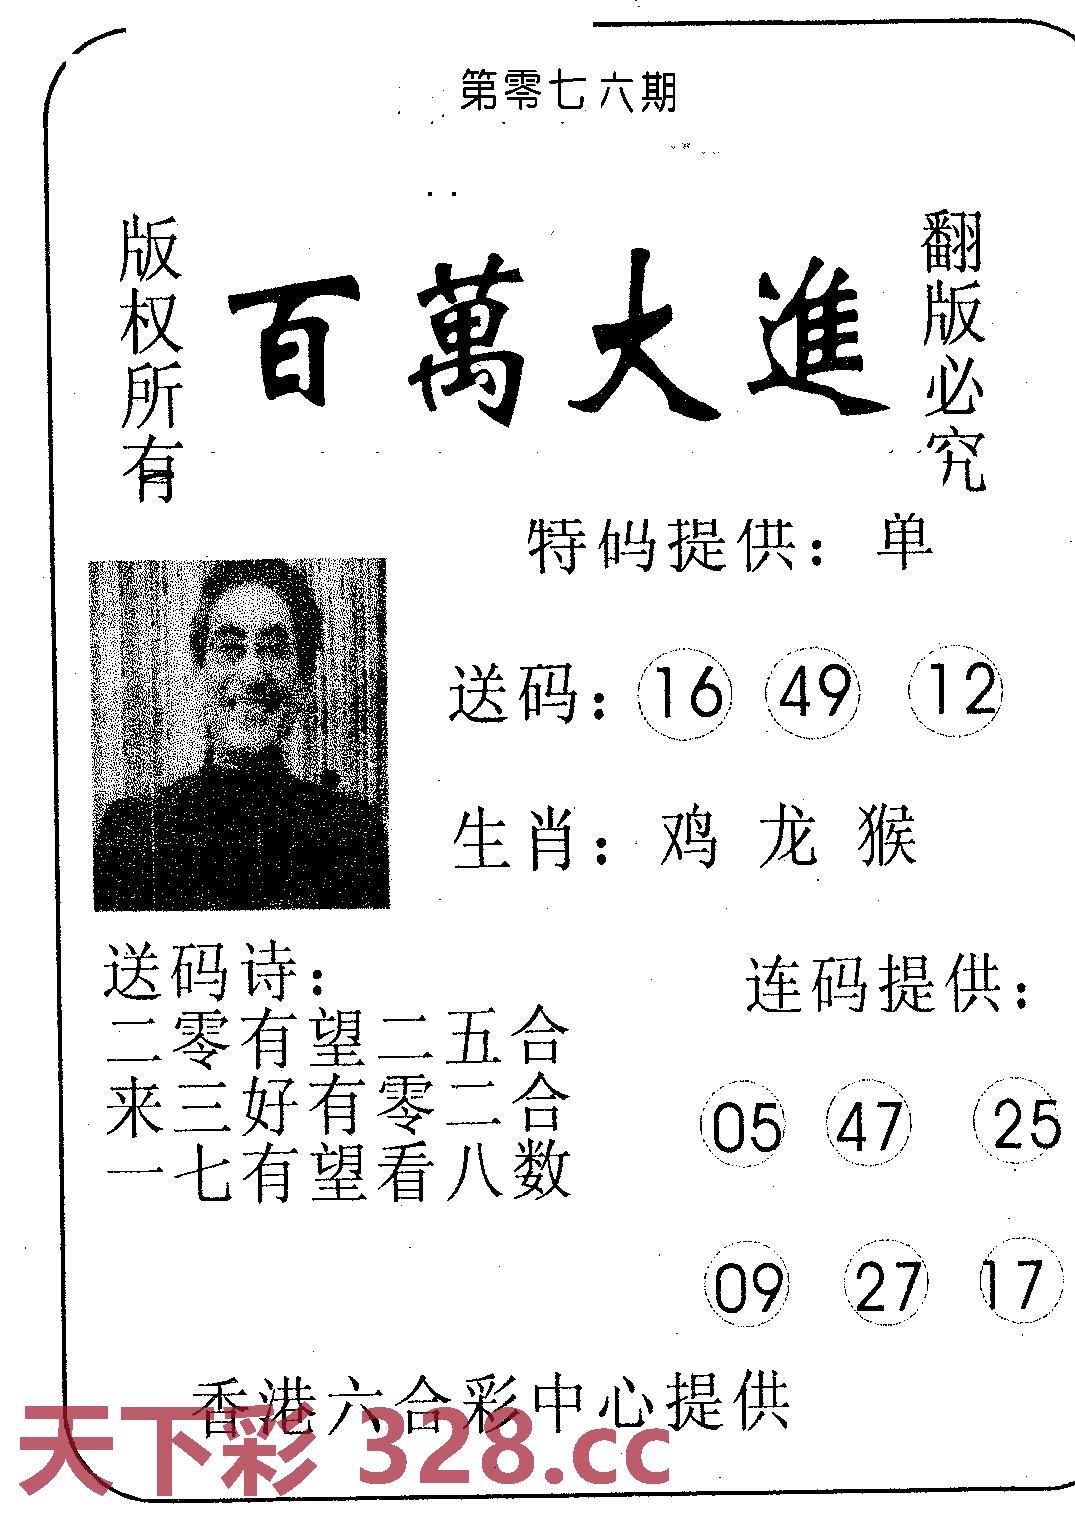 第零七六期
版权所有
百萬大進
翻版必究
特码提供：单
送码：16 49 12
生肖：鸡 龙 猴
送码诗：
二零有望二五合
来三好有零二合
一七有望看八数
连码提供：
05 47 25
09 27 17
香港六合彩中心提供
天下彩 328.cc